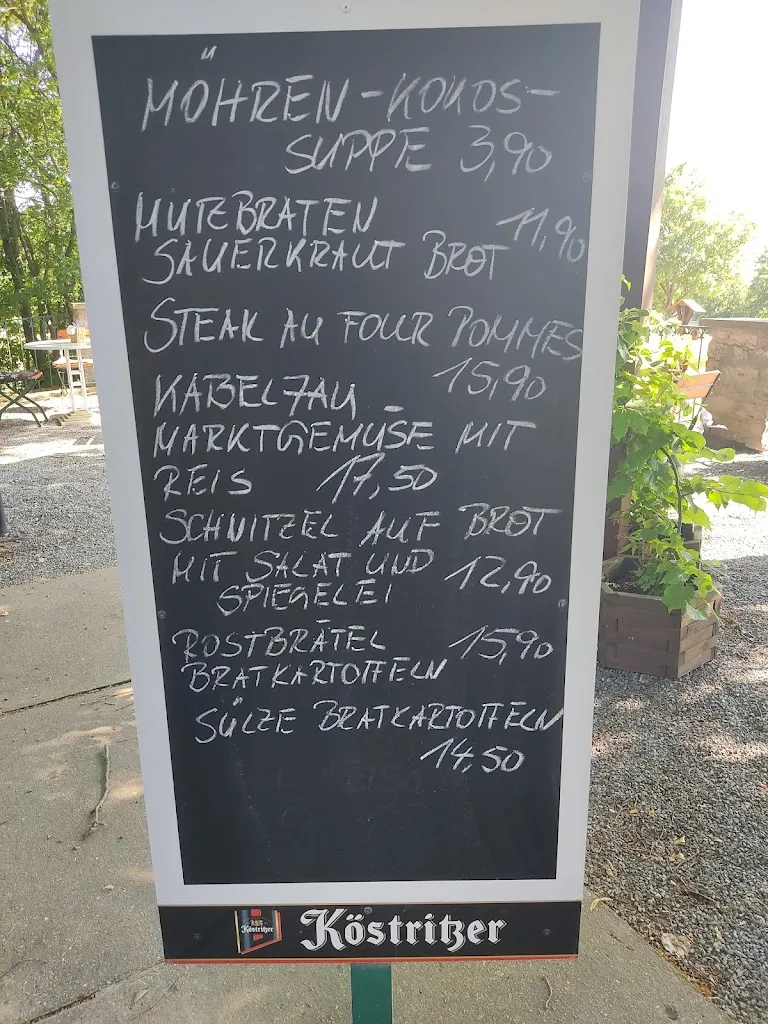 MÖHREN-KOKOS-
SUPPE 3,90
MUTZBRATEN 11,90
SAUERKRAUT BROT
STEAK AU FOUR POMMES
15,90
KABELJAU
MARKTGEMÜSE MIT
REIS 17,50
SCHNITZEL AUF BROT
MIT SALAT UND 12,90
SPIEGELEI
ROSTBRÄTEL 15,90
BRATKARTOFFELN
SÜLZE BRATKARTOFFELN
14,50
Köstritzer
Köstritzer